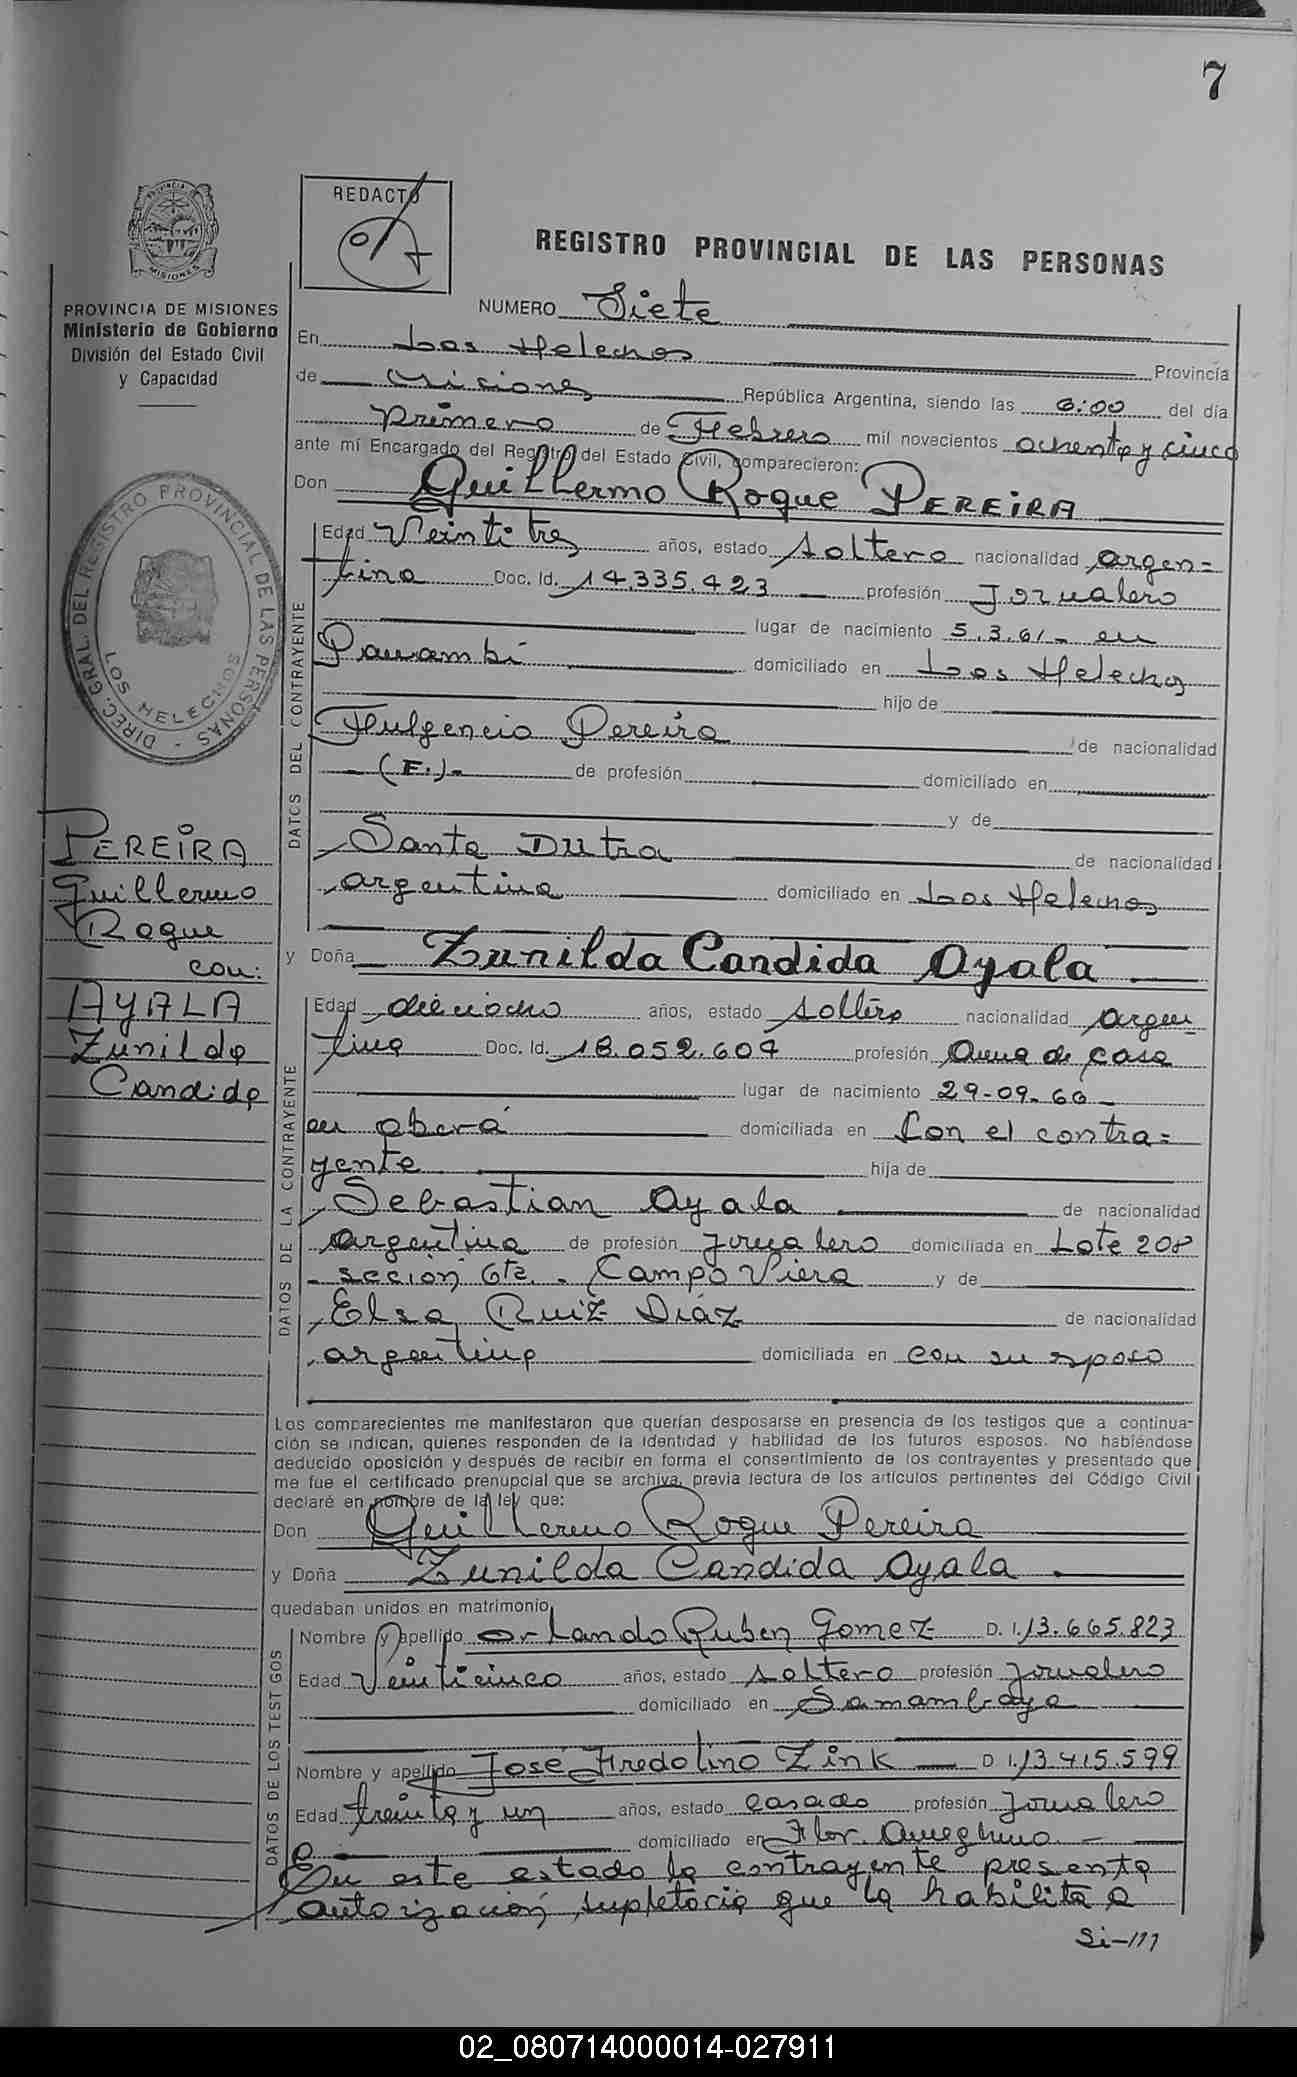 7
PROVINCIA DE MISIONES
Ministerio de Gobierno
División del Estado Civil
y Capacidad
REDACTO
REGISTRO PROVINCIAL DE LAS PERSONAS
NUMERO Siete
En Los Helechos Provincia
de Misiones República Argentina, siendo las 6:00 del día
primero de Febrero mil novecientos ochenta y cinco
ante mí Encargado del Registro del Estado Civil, comparecieron:
Don Guillermo Roque PEREIRA
DIREC. GRAL. DEL REGISTRO PROVINCIAL DE LAS PERSONAS - LOS HELECHOS
PEREIRA
Guillermo
Roque
con:
AYALA
Zunilda
Candida
DATOS DEL CONTRAYENTE
Edad Veintitres años, estado soltero nacionalidad argen=
tina Doc. Id. 14.335.423 profesión Jornalero
lugar de nacimiento 5.3.61- en
Panambi domiciliado en Los Helechos
hijo de
Fulgencio Pereira de nacionalidad
(F.)- de profesión domiciliado en
y de
Santa Dutra de nacionalidad
argentina domiciliado en Los Helechos
y Doña Zunilda Candida Ayala
DATOS DE LA CONTRAYENTE
Edad dieciocho años, estado soltera nacionalidad argen
tina Doc. Id. 18.052.604 profesión Ama de casa
lugar de nacimiento 29-09-66-
en oberá domiciliada en Con el contra=
yente hija de
Sebastian Ayala de nacionalidad
argentina de profesión jornalero domiciliada en Lote 208
- seccion 6ta. - Campo Viera y de
Elsa Ruiz Diaz de nacionalidad
argentina domiciliada en con su esposo
Los comparecientes me manifestaron que querían desposarse en presencia de los testigos que a continua-
ción se indican, quienes responden de la identidad y habilidad de los futuros esposos. No habiéndose
deducido oposición y después de recibir en forma el consentimiento de los contrayentes y presentado que
me fue el certificado prenupcial que se archiva, previa lectura de los artículos pertinentes del Código Civil
declaré en nombre de la ley que:
Don Guillermo Roque Pereira
y Doña Zunilda Candida Ayala
quedaban unidos en matrimonio
DATOS DE LOS TESTIGOS
Nombre y apellido Orlando Ruben Gomez D. I. 13.665.823
Edad Veinticinco años, estado soltero profesión jornalero
domiciliado en Samambaya
Nombre y apellido José Fredolino Zink D I. 13.415.599
Edad treinta y un años, estado casado profesión Jornalero
domiciliado en Flor. Ameghino -
En este estado la contrayente presenta
autorización supletoria que la habilita a
02_080714000014-027911